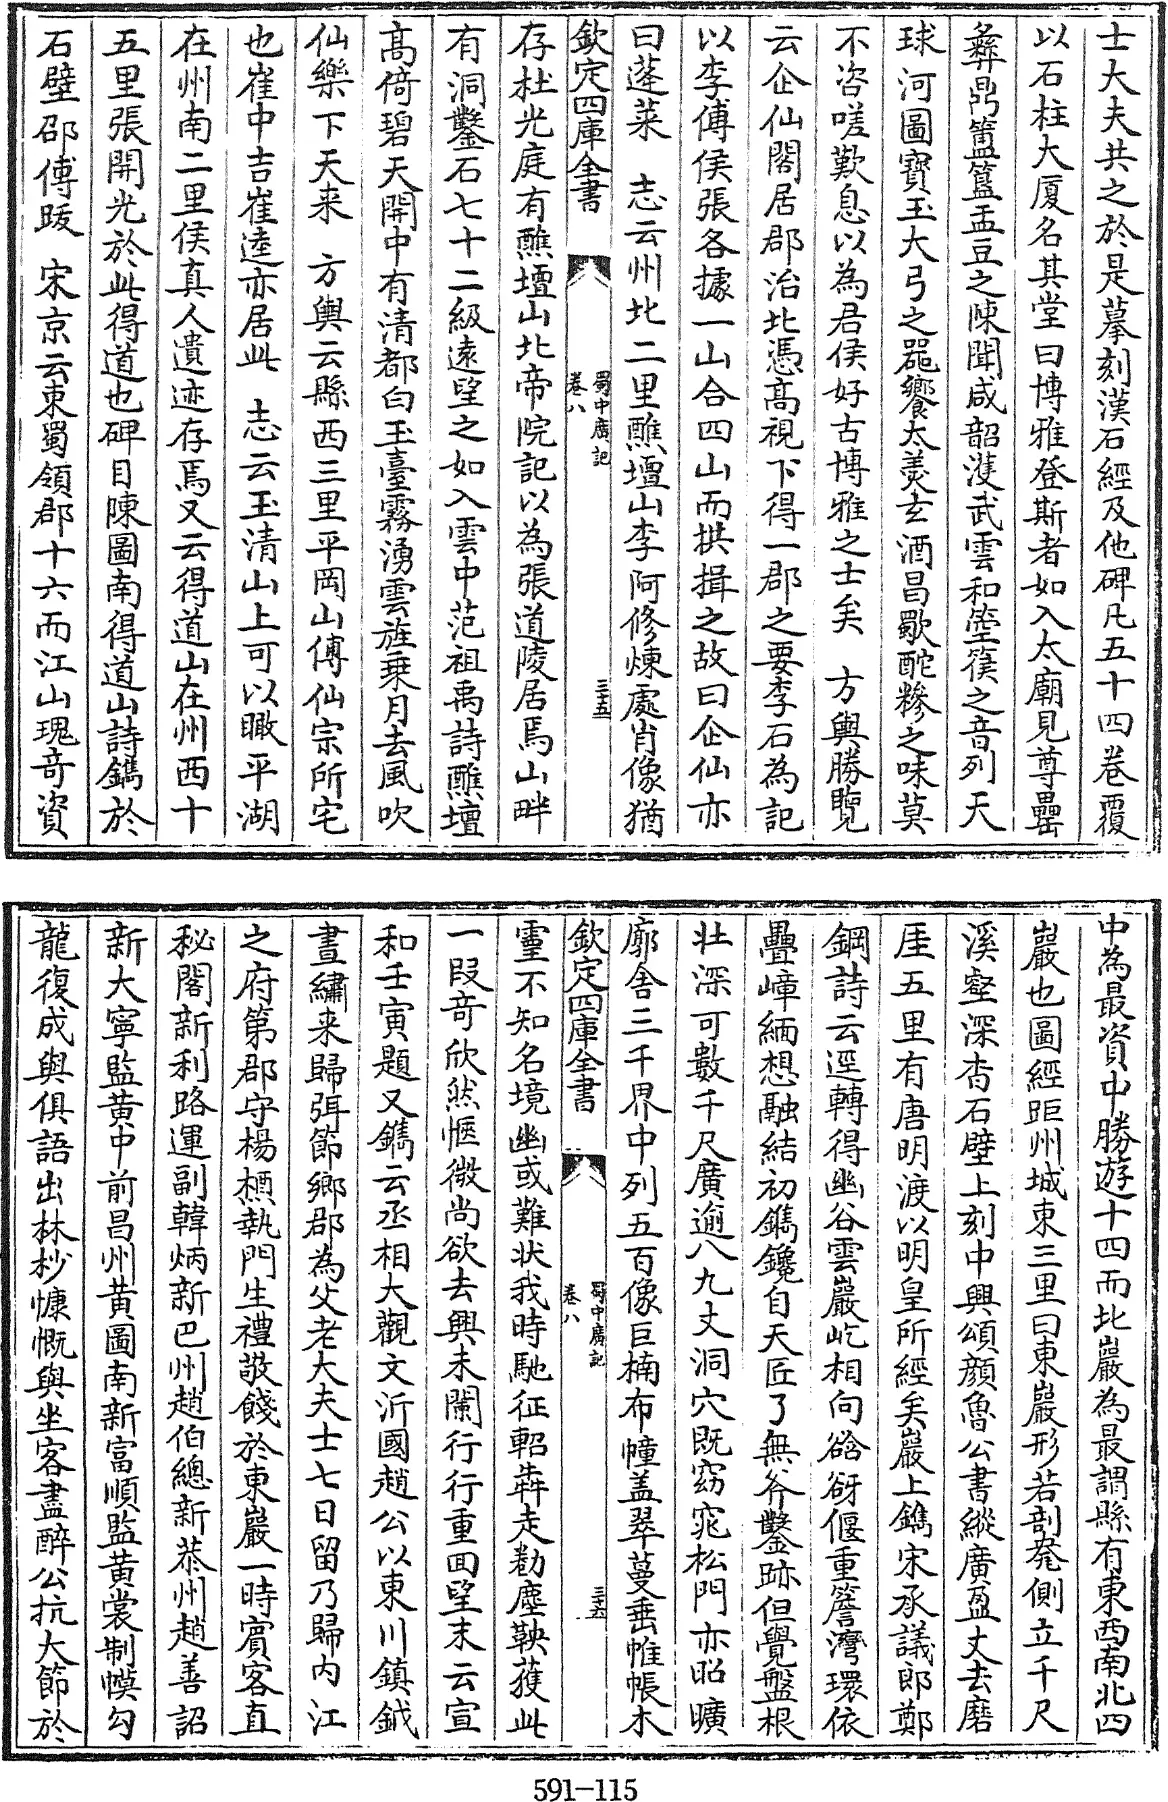 士大夫共之於是摹刻漢石經及他碑凡五十四卷覆
以石柱大厦名其堂曰博雅登斯者如入太廟見尊罍
彝鼎簠簋盂豆之陳聞咸韶濩武雲和箜篌之音列天
球河圖寳玉大弓之噐饗太羮𤣥酒昌歜酏糝之味莫
不咨嗟歎息以為君侯好古博雅之士矣　方輿勝覽
云企仙閣居郡治北憑髙視下得一郡之要李石為記
以李傅侯張各據一山合四山而拱揖之故曰企仙亦
曰蓬萊　志云州北二里醮壇山李阿修煉處肖像猶
欽定四庫全書　蜀中廣記　卷八　三十五
存杜光庭有醮壇山北帝院記以為張道陵居焉山畔
有洞鑿石七十二級遠望之如入雲中范祖禹詩醮壇
髙倚碧天開中有清都白玉臺霧湧雲旌乗月去風吹
仙樂下天来　方輿云縣西三里平岡山傅仙宗所宅
也崔中吉崔逵亦居此　志云玉清山上可以瞰平湖
在州南二里侯真人遺迹存焉又云得道山在州西十
五里張開光於此得道也碑目陳圖南得道山詩鐫於
石壁邵傅跋　宋京云東蜀領郡十六而江山瑰竒資
中為最資中勝遊十四而北巖為最謂縣有東西南北四
巖也圖經距州城東三里曰東巖形若剖甕側立千尺
溪壑深杳石壁上刻中興頌顔魯公書縱廣盈丈去磨
厓五里有唐明渡以明皇所經矣巖上鐫宋承議郎鄭
鋼詩云逕轉得幽谷雲巖屹相向谽谺偃重簷灣環依
疊嶂緬想融結初鐫鑱自天匠了無斧鑿跡但覺盤根
壮深可數千尺廣逾八九丈洞穴既窈窕松門亦昭曠
廓舍三千界中列五百像巨楠布幢盖翠蔓垂帷帳木
欽定四庫全書　蜀中廣記　卷八　三十六
靈不知名境幽或難状我時馳征軺犇走勌塵鞅獲此
一段竒欣然愜微尚欲去興未闌行行重回望末云宣
和壬寅題又鐫云丞相大觀文沂國趙公以東川鎮鉞
晝繡来歸弭節郷郡為父老大夫士七日留乃歸内江
之府第郡守楊㯹執門生禮敬餞於東巖一時賔客直
秘閣新利路運副韓炳新巴州趙伯總新恭州趙善詔
新大寧監黄中前昌州黄圖南新富順監黄裳制幙勾
龍復成與俱語出林杪慷慨與坐客盡醉公抗大節於
591—115